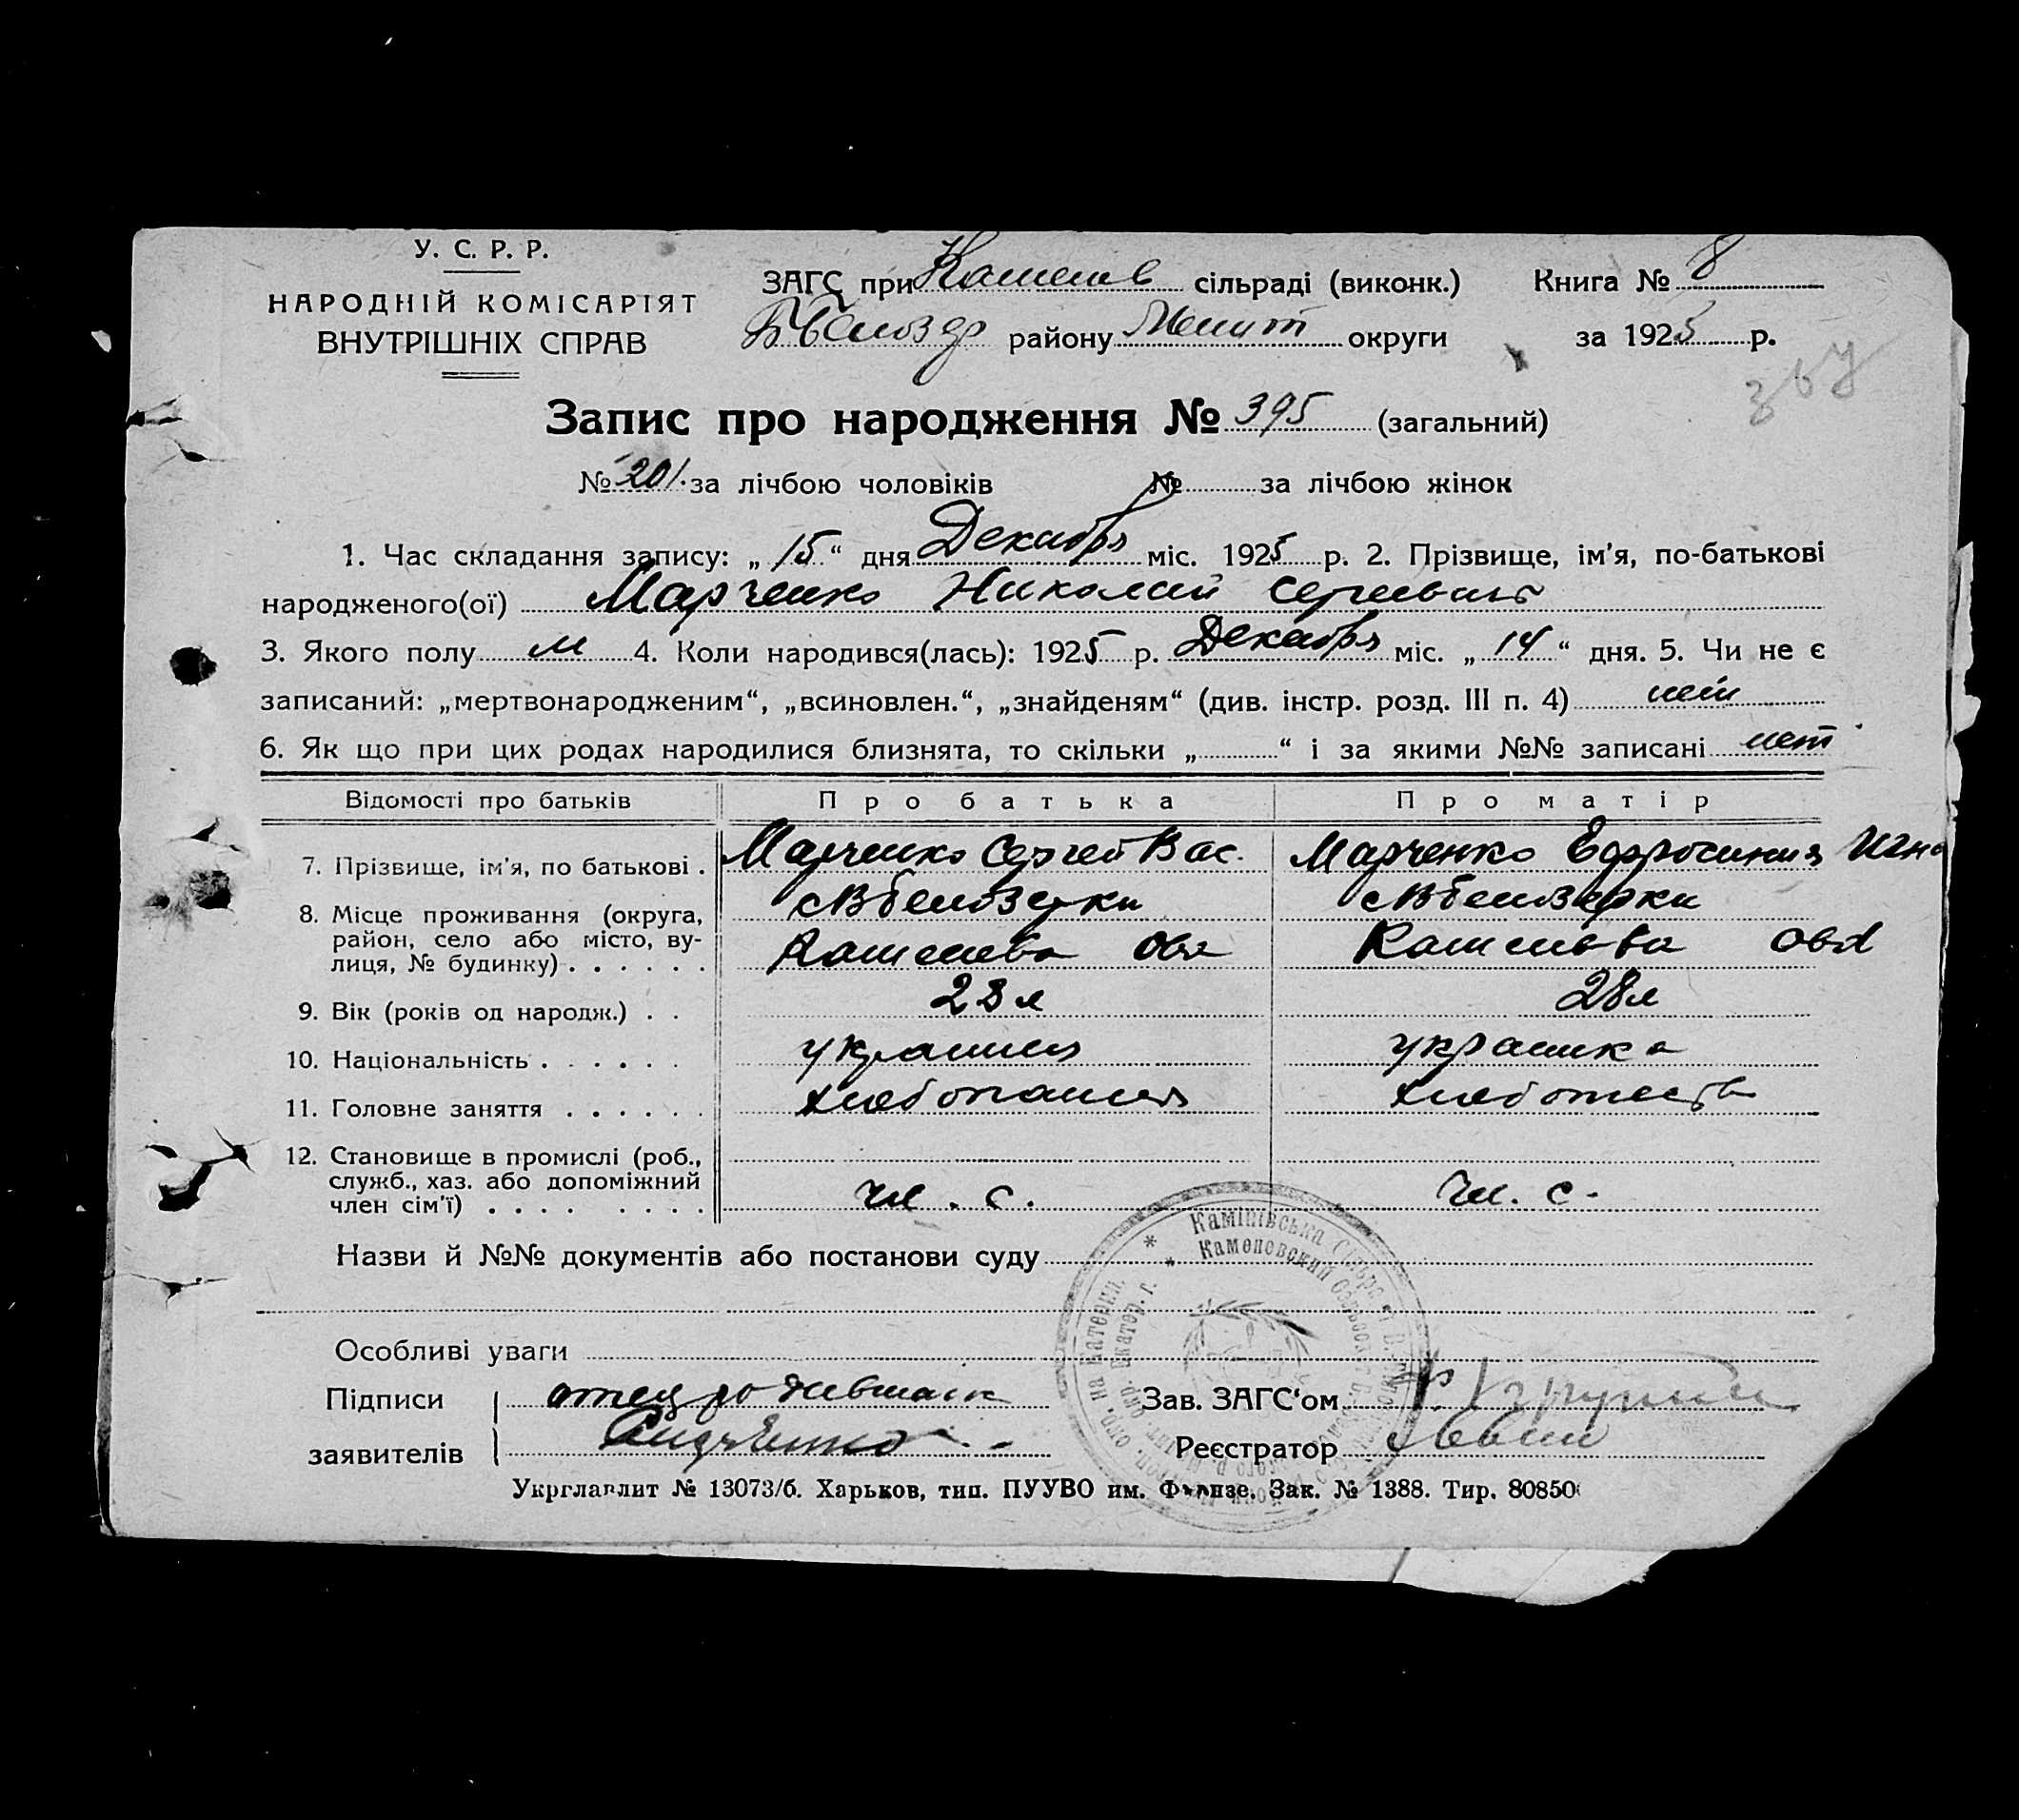 У. С. Р. Р.
НАРОДНІЙ КОМІСАРІЯТ
ВНУТРІШНІХ СПРАВ
ЗАГС при сільраді (виконк.) Книга № 8
району округи за 1925 р.
Запис про народження № 395 (загальний)
№ 201. за лічбою чоловіків № за лічбою жінок
1. Час складання запису: „ 15 “ дня Декабря міс. 1925 р. 2. Прізвище, ім'я, по-батькові
народженого(ої) Марченко Николай Сергеевич
3. Якого полу м 4. Коли народився(лась): 1925 р. Декабря міс. „ 14 “ дня. 5. Чи не є
записаний: „мертвонародженим“, „всиновлен.“, „знайденям“ (див. інстр. розд. III п. 4) нет
6. Як що при цих родах народилися близнята, то скільки „ “ і за якими №№ записані нет
Відомості про батьків Про батька Про матір
7. Прізвище, ім'я, по батькові . Марченко Сергей Вас. Марченко Ефросиния Игна
8. Місце проживання (округа,
район, село або місто, ву-
лиця, № будинку) . . . . . .
9. Вік (років од народж.) . . 28л
10. Національність . . . . . . украинец украинка
11. Головне заняття . . . . . .
12. Становище в промислі (роб.,
служб., хаз. або допоміжний
член сім'ї) . . . . . . . . чл. с. чл. с.
Назви й №№ документів або постанови суду
Особливі уваги
Підписи отец Зав. ЗАГС‘ом
заявителів Реєстратор
Укрглавлит № 13073/б. Харьков, тип. ПУУВО им. Фрунзе. Зак. № 1388. Тир. 80850